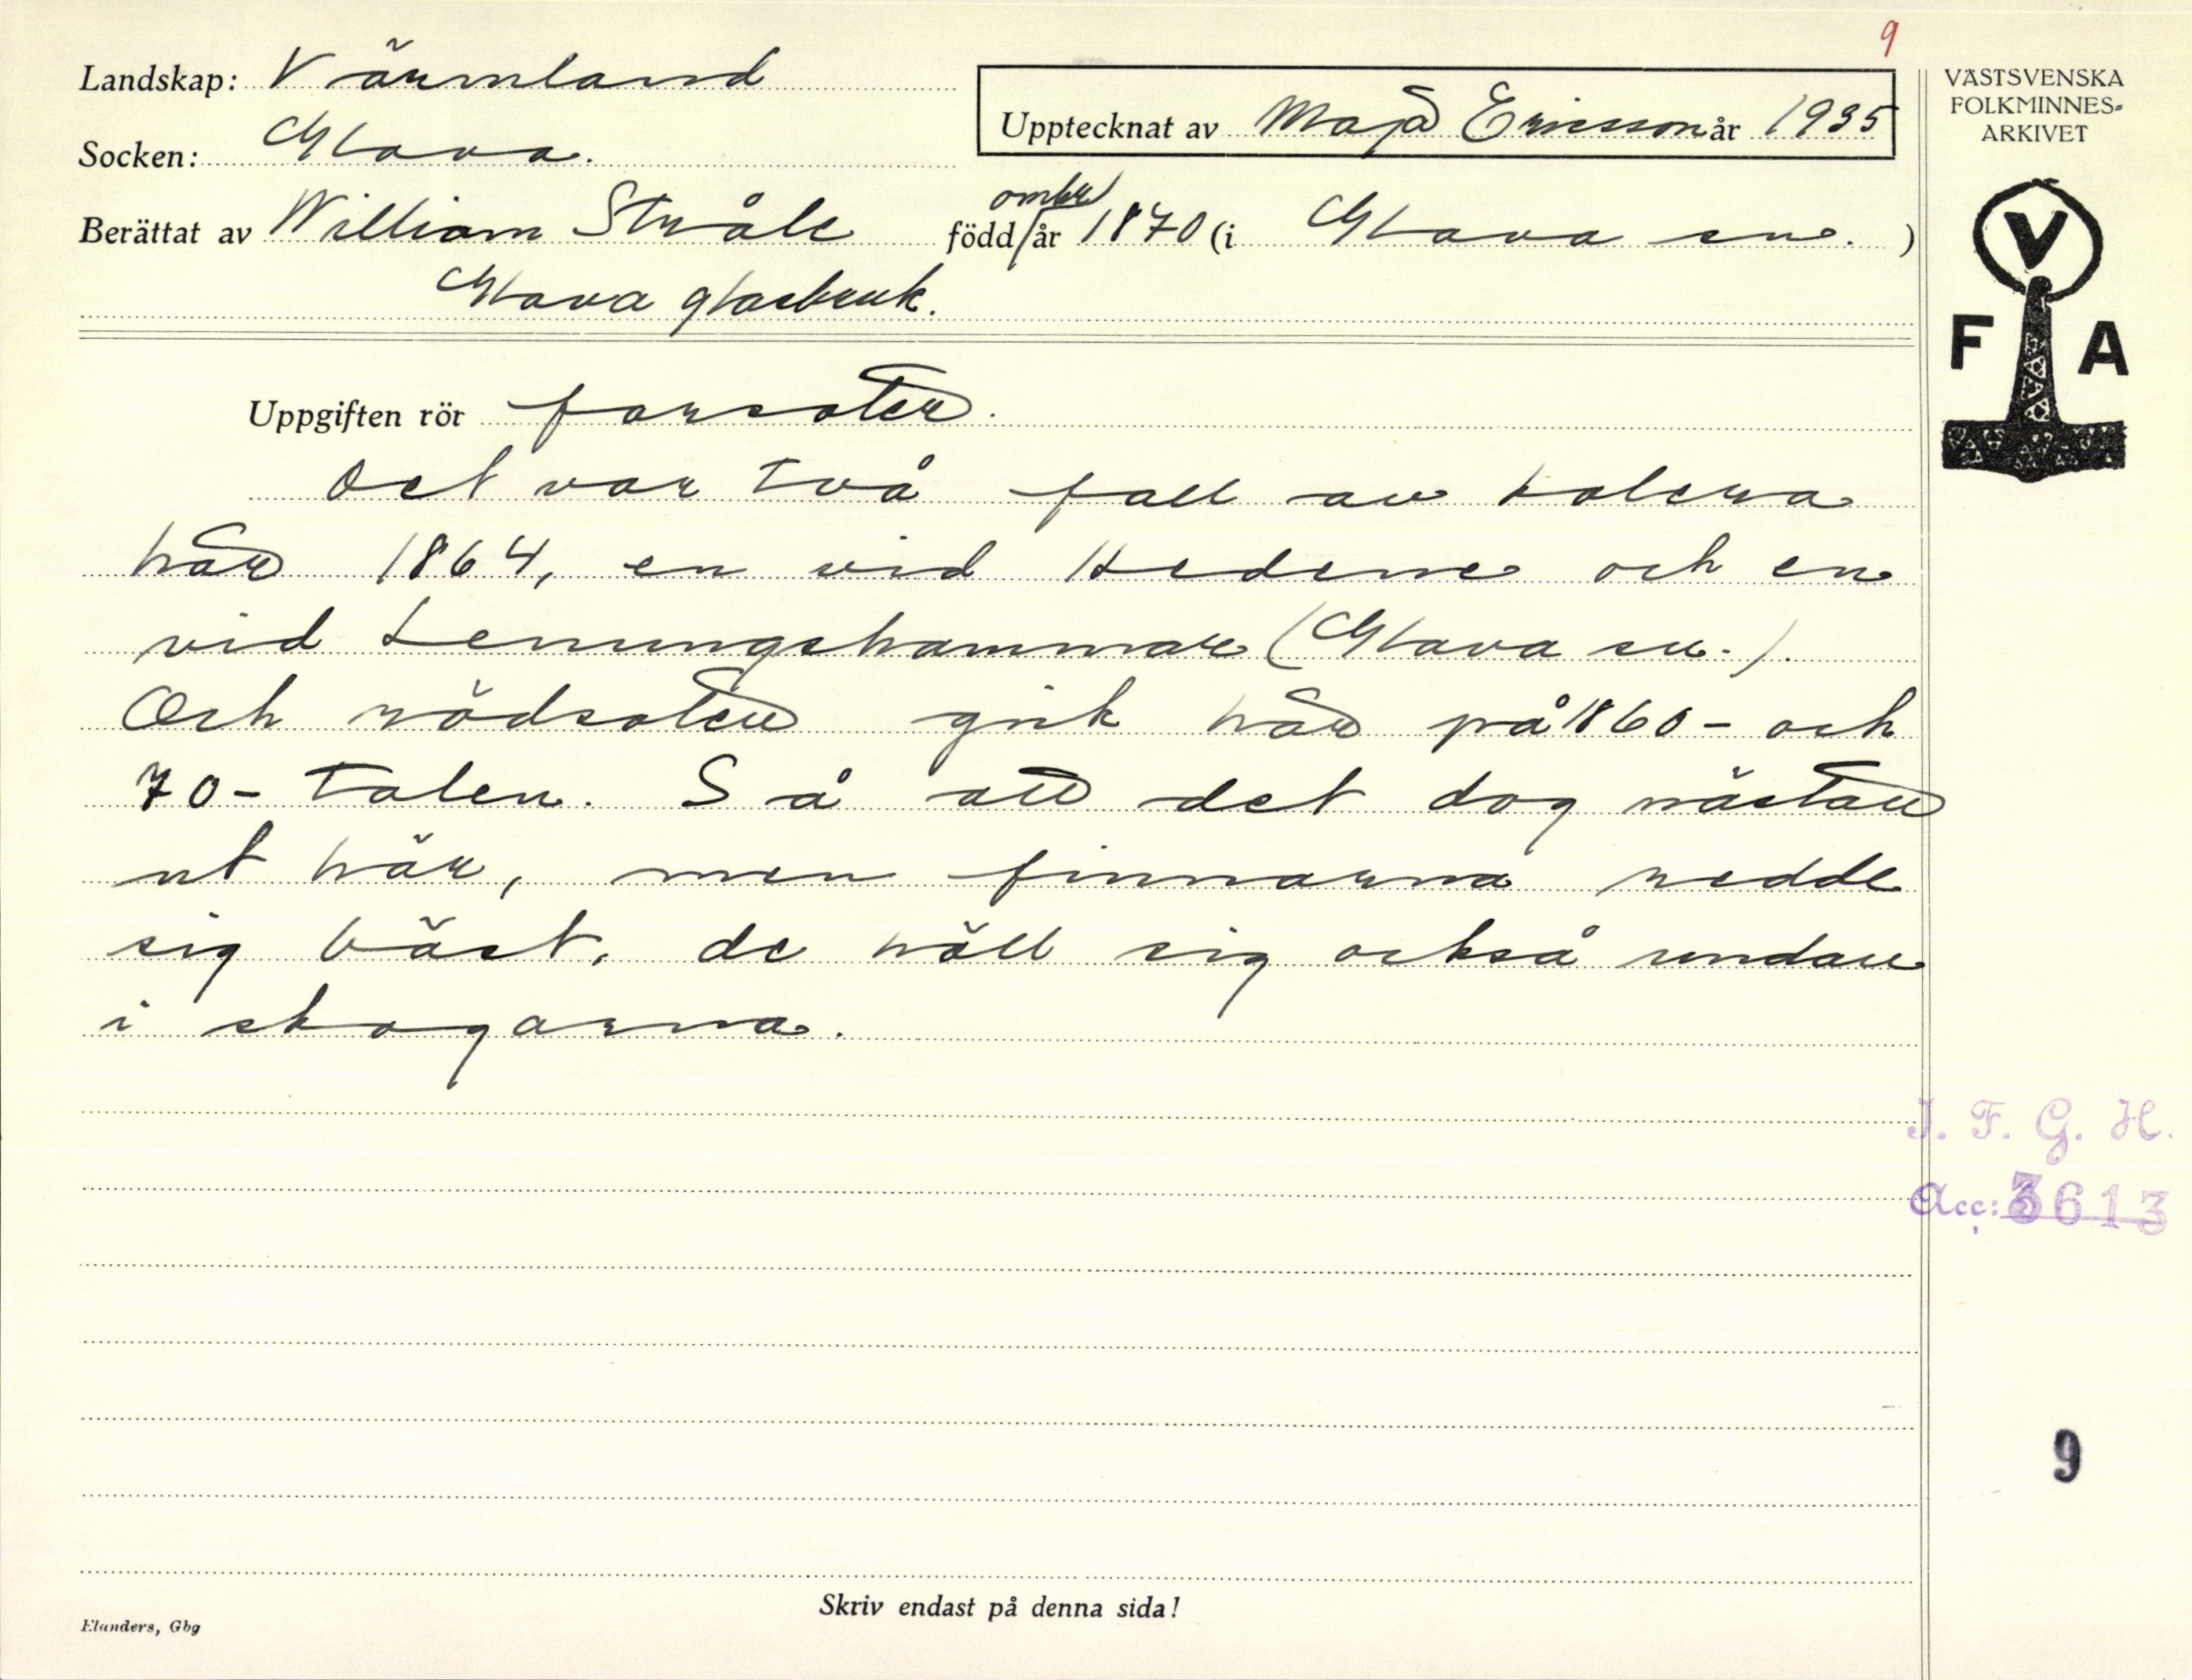 9
Landskap: Värmland
Upptecknat av Maja Ericsson år 1935
VÄSTSVENSKA
FOLKMINNES-
ARKIVET
Socken: Glava.
omkr
Berättat av William Stråle född/år 1870 (i Glava sn. )
Glava glasbruk.
V
F A
Uppgiften rör farsoter.
Det var två fall av kolera
här 1864, en vid Hedene och en
vid Lenungshammar (Glava sn.).
Och rödsoten gick här på 1860- och
70-talen. Så att det dog nästan
ut här, men finnarna redde
sig bäst, de höll sig också undan
i skogarna.
I. F. G. H.
Acc: 3613
9
Skriv endast på denna sida!
Elanders, Gbg